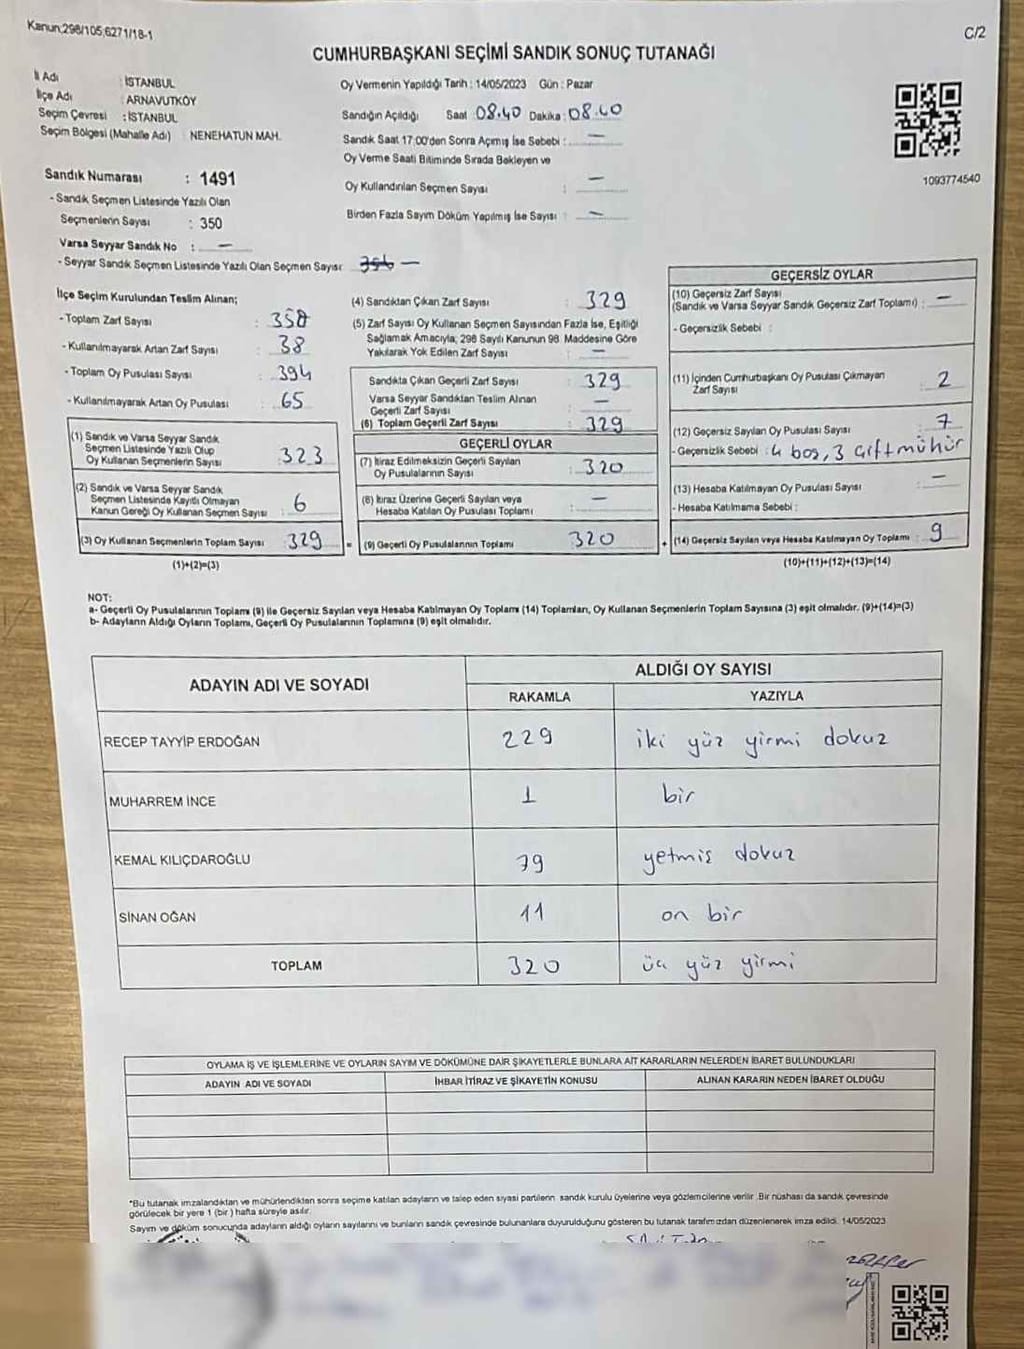 Kanun,298/105,6271/18-1
C/2
CUMHURBAŞKANI SEÇİMİ SANDIK SONUÇ TUTANAĞI
İl Adı : İSTANBUL
İlçe Adı : ARNAVUTKÖY
Seçim Çevresi : İSTANBUL
Seçim Bölgesi (Mahalle Adı) : NENEHATUN MAH.
Sandık Numarası : 1491
- Sandık Seçmen Listesinde Yazılı Olan
Seçmenlerin Sayısı : 350
Varsa Seyyar Sandık No : —
- Seyyar Sandık Seçmen Listesinde Yazılı Olan Seçmen Sayısı: —
Oy Vermenin Yapıldığı Tarih : 14/05/2023 Gün : Pazar
Sandığın Açıldığı Saat : 08.40 Dakika : 08.40
Sandık Saat 17:00'den Sonra Açımış İse Sebebi : —
Oy Verme Saati Bitiminde Sırada Bekleyen ve
Oy Kullandırılan Seçmen Sayısı : —
Birden Fazla Sayım Döküm Yapılmış İse Sayısı : —
1093774540
İlçe Seçim Kurulundan Teslim Alınan;
- Toplam Zarf Sayısı :
- Kullanılmayarak Artan Zarf Sayısı : 38
- Toplam Oy Pusulası Sayısı : 394
- Kullanılmayarak Artan Oy Pusulası : 65
(1) Sandık ve Varsa Seyyar Sandık
Seçmen Listesinde Yazılı Olup
Oy Kullanan Seçmenlerin Sayısı : 323
(2) Sandık ve Varsa Seyyar Sandık
Seçmen Listesinde Kayıtlı Olmayan
Kanun Gereği Oy Kullanan Seçmen Sayısı : 6
(3) Oy Kullanan Seçmenlerin Toplam Sayısı : 329
(1)+(2)=(3)
(4) Sandıktan Çıkan Zarf Sayısı : 329
(5) Zarf Sayısı Oy Kullanan Seçmen Sayısından Fazla İse, Eşitliği
Sağlamak Amacıyla; 298 Sayılı Kanunun 98. Maddesine Göre
Yakılarak Yok Edilen Zarf Sayısı : —
Sandıkta Çıkan Geçerli Zarf Sayısı : 329
Varsa Seyyar Sandıktan Teslim Alınan
Geçerli Zarf Sayısı : —
(6) Toplam Geçerli Zarf Sayısı : 329
GEÇERLİ OYLAR
(7) İtiraz Edilmeksizin Geçerli Sayılan
Oy Pusulalarının Sayısı : 320
(8) İtiraz Üzerine Geçerli Sayılan veya
Hesaba Katılan Oy Pusulası Toplamı : —
= (9) Geçerli Oy Pusulalarının Toplamı 320
GEÇERSİZ OYLAR
(10) Geçersiz Zarf Sayısı
(Sandık ve Varsa Seyyar Sandık Geçersiz Zarf Toplamı) : —
- Geçersizlik Sebebi :
(11) İçinden Cumhurbaşkanı Oy Pusulası Çıkmayan
Zarf Sayısı : 2
(12) Geçersiz Sayılan Oy Pusulası Sayısı : 7
- Geçersizlik Sebebi : 4 boş, 3 çift mühür
(13) Hesaba Katılmayan Oy Pusulası Sayısı : —
- Hesaba Katılmama Sebebi :
+ (14) Geçersiz Sayılan veya Hesaba Katılmayan Oy Toplamı : 9
(10)+(11)+(12)+(13)=(14)
NOT:
a- Geçerli Oy Pusulalarının Toplamı (9) ile Geçersiz Sayılan veya Hesaba Katılmayan Oy Toplamı (14) Toplamları, Oy Kullanan Seçmenlerin Toplam Sayısına (3) eşit olmalıdır. (9)+(14)=(3)
b- Adayların Aldığı Oyların Toplamı, Geçerli Oy Pusulalarının Toplamına (9) eşit olmalıdır.
ADAYIN ADI VE SOYADI ALDIĞI OY SAYISI
RAKAMLA YAZIYLA
RECEP TAYYİP ERDOĞAN 229 iki yüz yirmi dokuz
MUHARREM İNCE 1 bir
KEMAL KILIÇDAROĞLU 79 yetmiş dokuz
SİNAN OĞAN 11 on bir
TOPLAM 320 üç yüz yirmi
OYLAMA İŞ VE İŞLEMLERİNE VE OYLARIN SAYIM VE DÖKÜMÜNE DAİR ŞİKAYETLERLE BUNLARA AİT KARARLARIN NELERDEN İBARET BULUNDUKLARI
ADAYIN ADI VE SOYADI İHBAR İTİRAZ VE ŞİKAYETİN KONUSU ALINAN KARARIN NEDEN İBARET OLDUĞU
*Bu tutanak imzalandıktan ve mühürlendikten sonra seçime katılan adayların ve talep eden siyasi partilerin sandık kurulu üyelerine veya gözlemcilerine verilir .Bir nüshası da sandık çevresinde
görülecek bir yere 1 (bir ) hafta süreyle asılır.
Sayım ve döküm sonucunda adayların aldığı oyların sayılarını ve bunların sandık çevresinde bulunanlara duyurulduğunu gösteren bu tutanak tarafımızdan düzenlenerek imza edildi. 14/05/2023